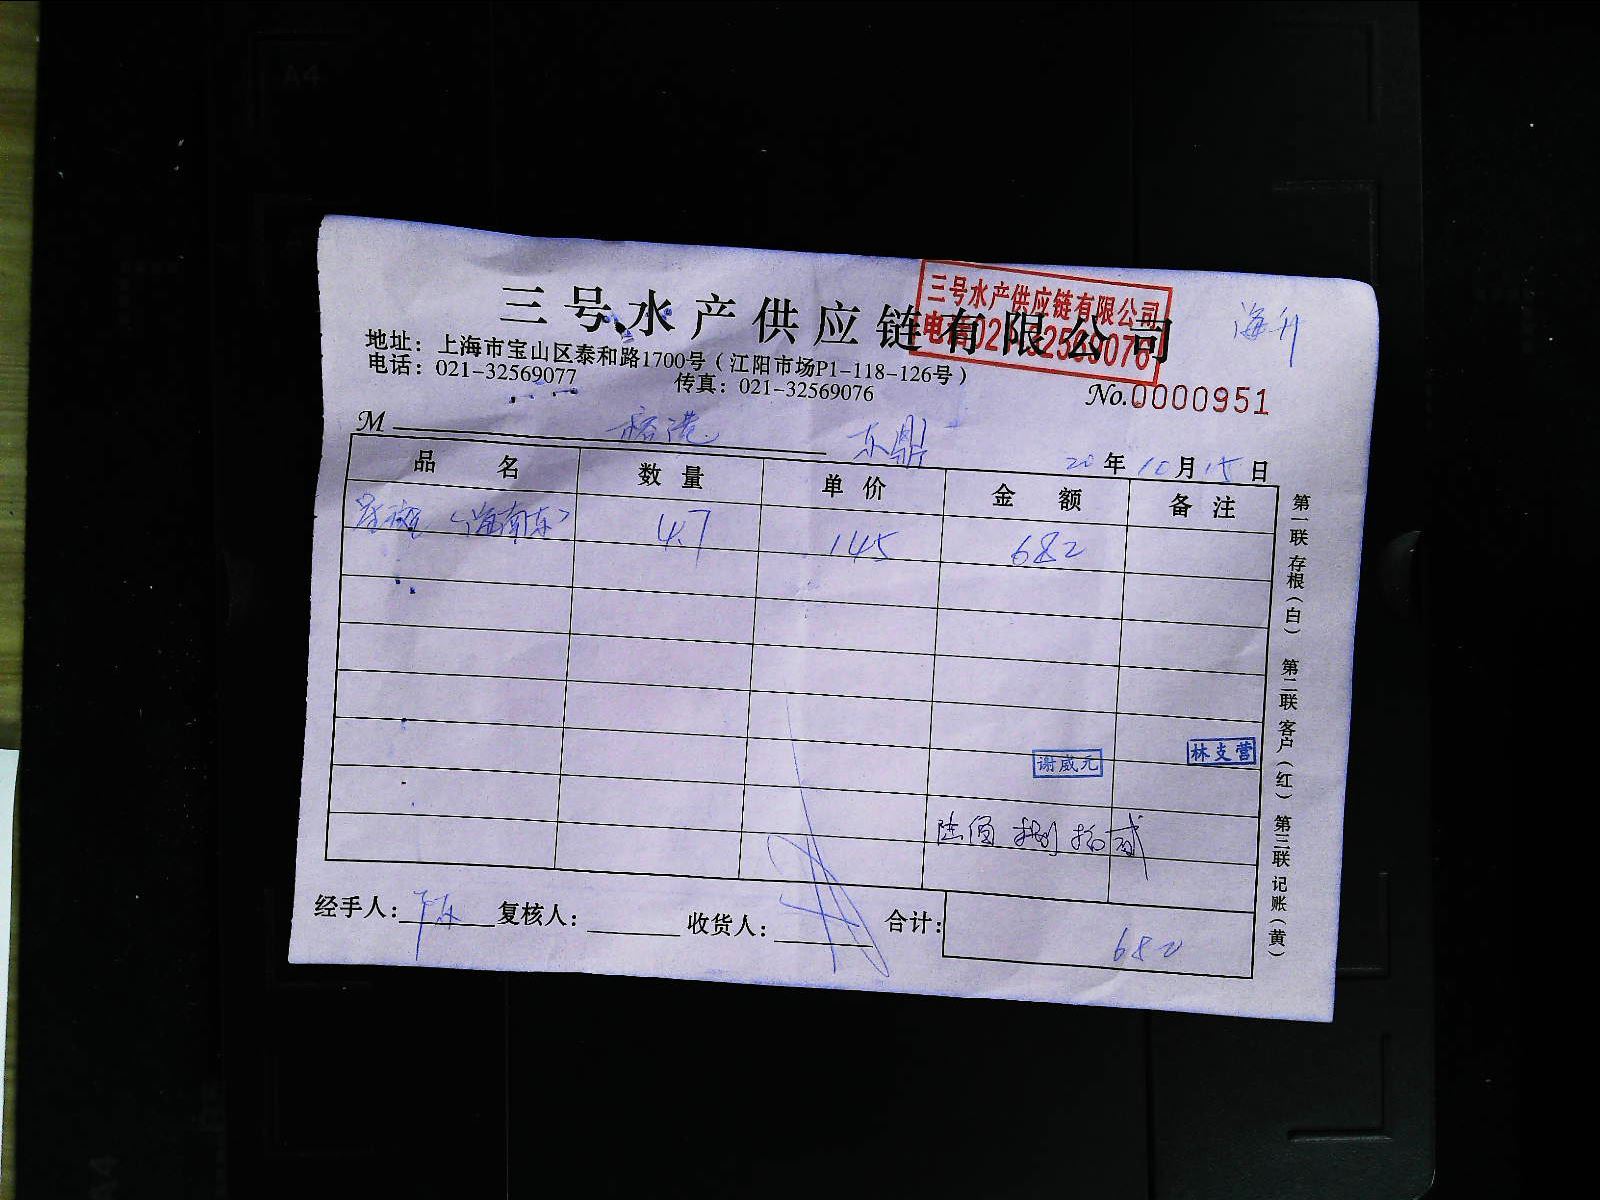 三号水产供应链有限公司
三号水产供应链有限公司
电话021-32569076
海升
地址：上海市宝山区泰和路1700号（江阳市场P1-118-126号）
电话：021-32569077 传真：021-32569076
No.0000951
M 裕港 东鼎
20年10月15日
品名 数量 单价 金额 备注
星斑（海南东） 4.7 145 682
谢威元 林支营
陆佰捌拾贰
经手人： 复核人： 收货人： 合计：682
第一联存根（白） 第二联客户（红） 第三联记账（黄）